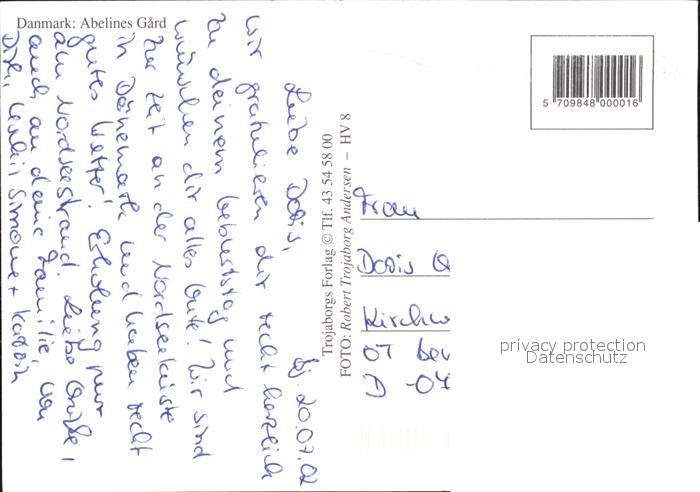 Danmark: Abelines Gård
20.07.02
Liebe Doris,
wir gratulieren dir recht herzlich
zu deinem Geburtstag und
wünschen dir alles Gute! Wir sind
zur Zeit an der Nordseeküste
in Dänemark und haben recht
gutes Wetter! Erholung pur
am Nordseestrand. Liebe Grüße,
auch an deine Familie, von
Dirk, Simone + Katrin
Trojaborgs Forlag © Tlf. 43 54 58 00
FOTO: Robert Trojaborg Andersen – HV 8
5 709848 000016
Frau
Doris
Kirchw
OT
D -04
privacy protection
Datenschutz